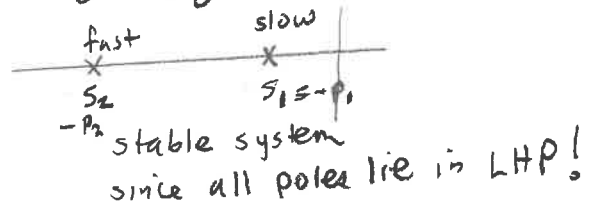 fast slow
S₂ S₁ = -P₁
-P₂
stable system
since all poles lie in LHP!